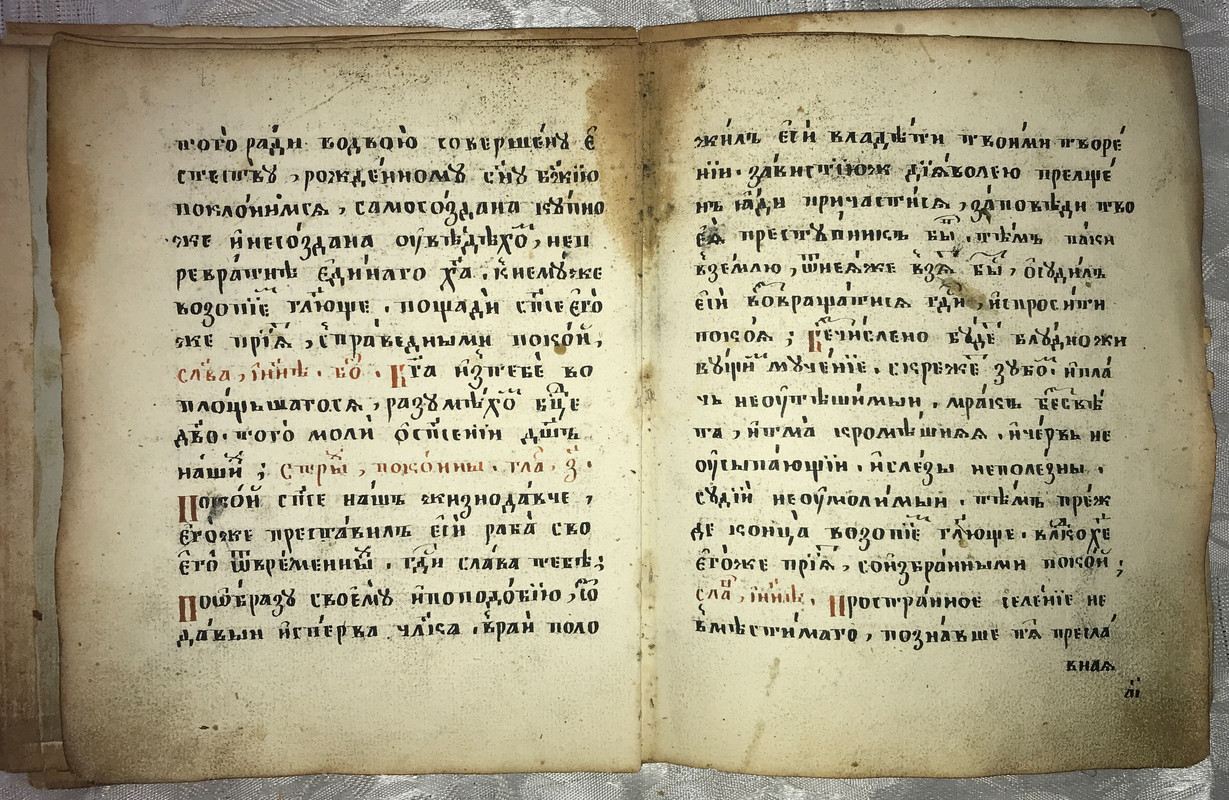 того̀ ра́ди водвою̀ соверше́нꙋ є҆
стествꙋ̀ , рожде́нномꙋ сн҃ꙋ бж҃їю
поклони́мсѧ , самосо́здана кꙋпно
же и҆несо́здана ѹ҆вѣ́дѣхо , неп
ревра́тнѣ є҆ди́наго хⷭ҇а . кнемꙋ́же
возопїе́ гл҃юще . пощадѝ сп҃се є҆го
же прїѧ , спра́ведными поко́й ,
сла́ва , и҆нн҃ѣ . бо . Кт҃а и҆зтебѐ во
площьшагосѧ , разꙋмѣ́хо бц҃е
дв҃о . того̀ молѝ ѡ҆сп҃се́нїи дш҃ъ
на́ши ; стⷯры , поко́йны . гла . з҃ .
Поко́й сп҃се на́шъ жизнода́вче ,
є҆го́же преста́вилъ є҆сѝ раба̀ сво
є҆го̀ ѿвре́менны . гдⷭ҇и сла́ва тебѣ̀ ;
Поѡ́бразꙋ своемꙋ̀ и҆поподо́бїю , со
да́выи и҆спе́рва чл҃ка . вра́й поло
жи́лъ є҆сѝ владѣ́ти твои́ми творе́
нїи . за́вистїюж дїѧ́волею преще́
нъ ꙗ҆́ди причасти́сѧ , за́повѣди тво
еѧ̀ престꙋ́пникъ бы . тѣ́мъ па́ки
взе́млю , ѿнеѧ́же взѧ бы , ѡ҆сꙋди́лъ
є҆сѝ возвраща́тисѧ гдⷭ҇и , и҆спроси́ти
поко́ѧ ; Бечи́слено бꙋ́де блꙋ́дножи
вꙋ́щи мꙋче́нїе . скреже зꙋбо . и҆пла́
чь неѹтѣ́шимыи , мра́къ бесвѣ́
та , и҆тма̀ кромѣ́шнѧѧ . и҆че́рвь не
ѹ҆сыпа́ющїи . и҆сле́зы непо́лезны .
сꙋдїѝ неѹмоли́мыи . тѣ́мъ пре́ж
де конца̀ возопїе́ гл҃юще . влⷣкохе
є҆го́же прїѧ , соизбра́нными поко́й ;
сла , и҆нн҃ѣ . Простра́нное селе́нїе не
вмѣсти́маго , позна́вше тѧ̀ пресла́
внаѧ